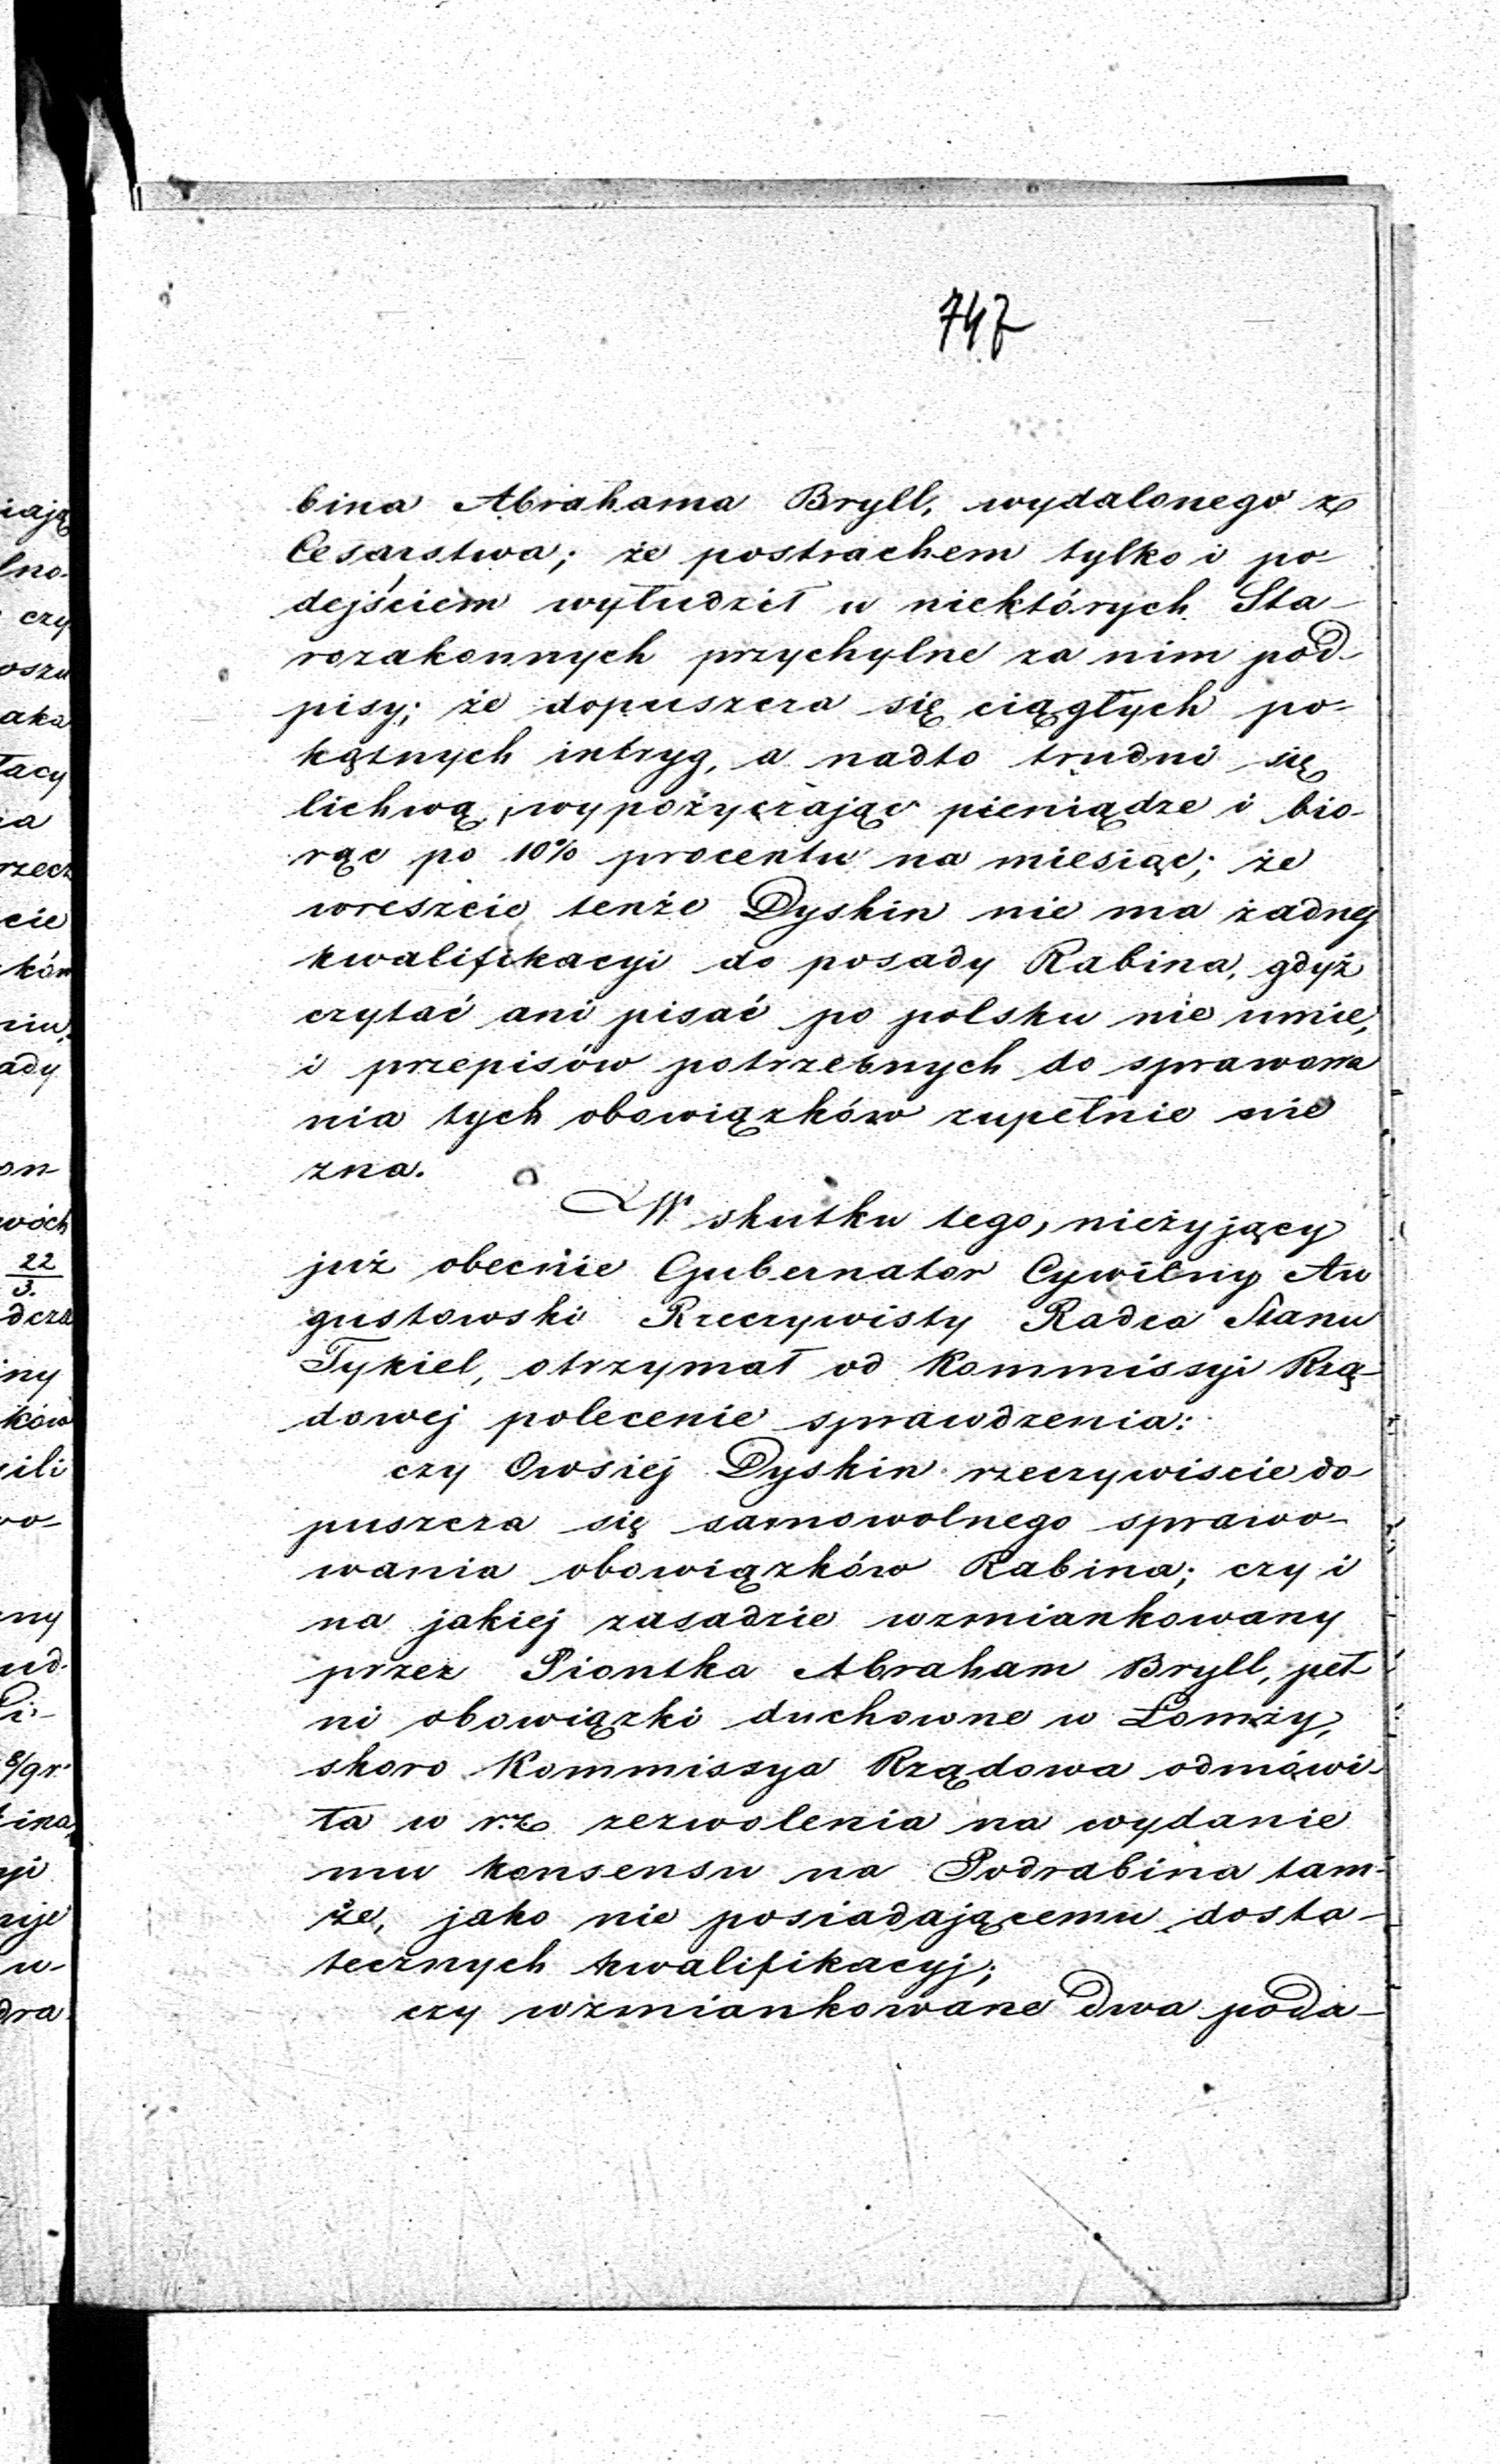 747
bina Abrahama Bryll, wydalonego z
Cesarstwa; że postrachem tylko i po-
dejściem wyłudził u niektórych Sta-
rozakonnych przychylne za nim pod-
pisy; że dopuszcza się ciągłych po-
kątnych intryg, a nadto trudni się
lichwą, wypożyczając pieniądze i bio-
rąc po 10% procentu na miesiąc; że
wreszcie tenże Dyskin nie ma żadnej
kwalifikacyi do posady Rabina, gdyż
czytać ani pisać po polsku nie umie,
i przepisów potrzebnych do sprawowa
nia tych obowiązków zupełnie nie
zna.
W skutku tego, nieżyjący
już obecnie Gubernator Cywilny Au
gustowski Rzeczywisty Radca Stanu
Tykiel, otrzymał od Kommissyi Rzą-
dowej polecenie sprawdzenia:
czy Owsiej Dyskin rzeczywiscie do-
puszcza się samowolnego sprawo-
wania obowiązków Rabina; czy i
na jakiej zasadzie wzmiankowany
przez Piontka Abraham Bryll, peł
ni obowiązki duchowne w Łomży,
skoro Kommissya Rządowa odmówi-
ła w r.z. zezwolenia na wydanie
mu konsensu na Podrabina tam-
że, jako nie posiadającemu dosta-
tecznych kwalifikacyj;
czy wzmiankowane dwa poda-